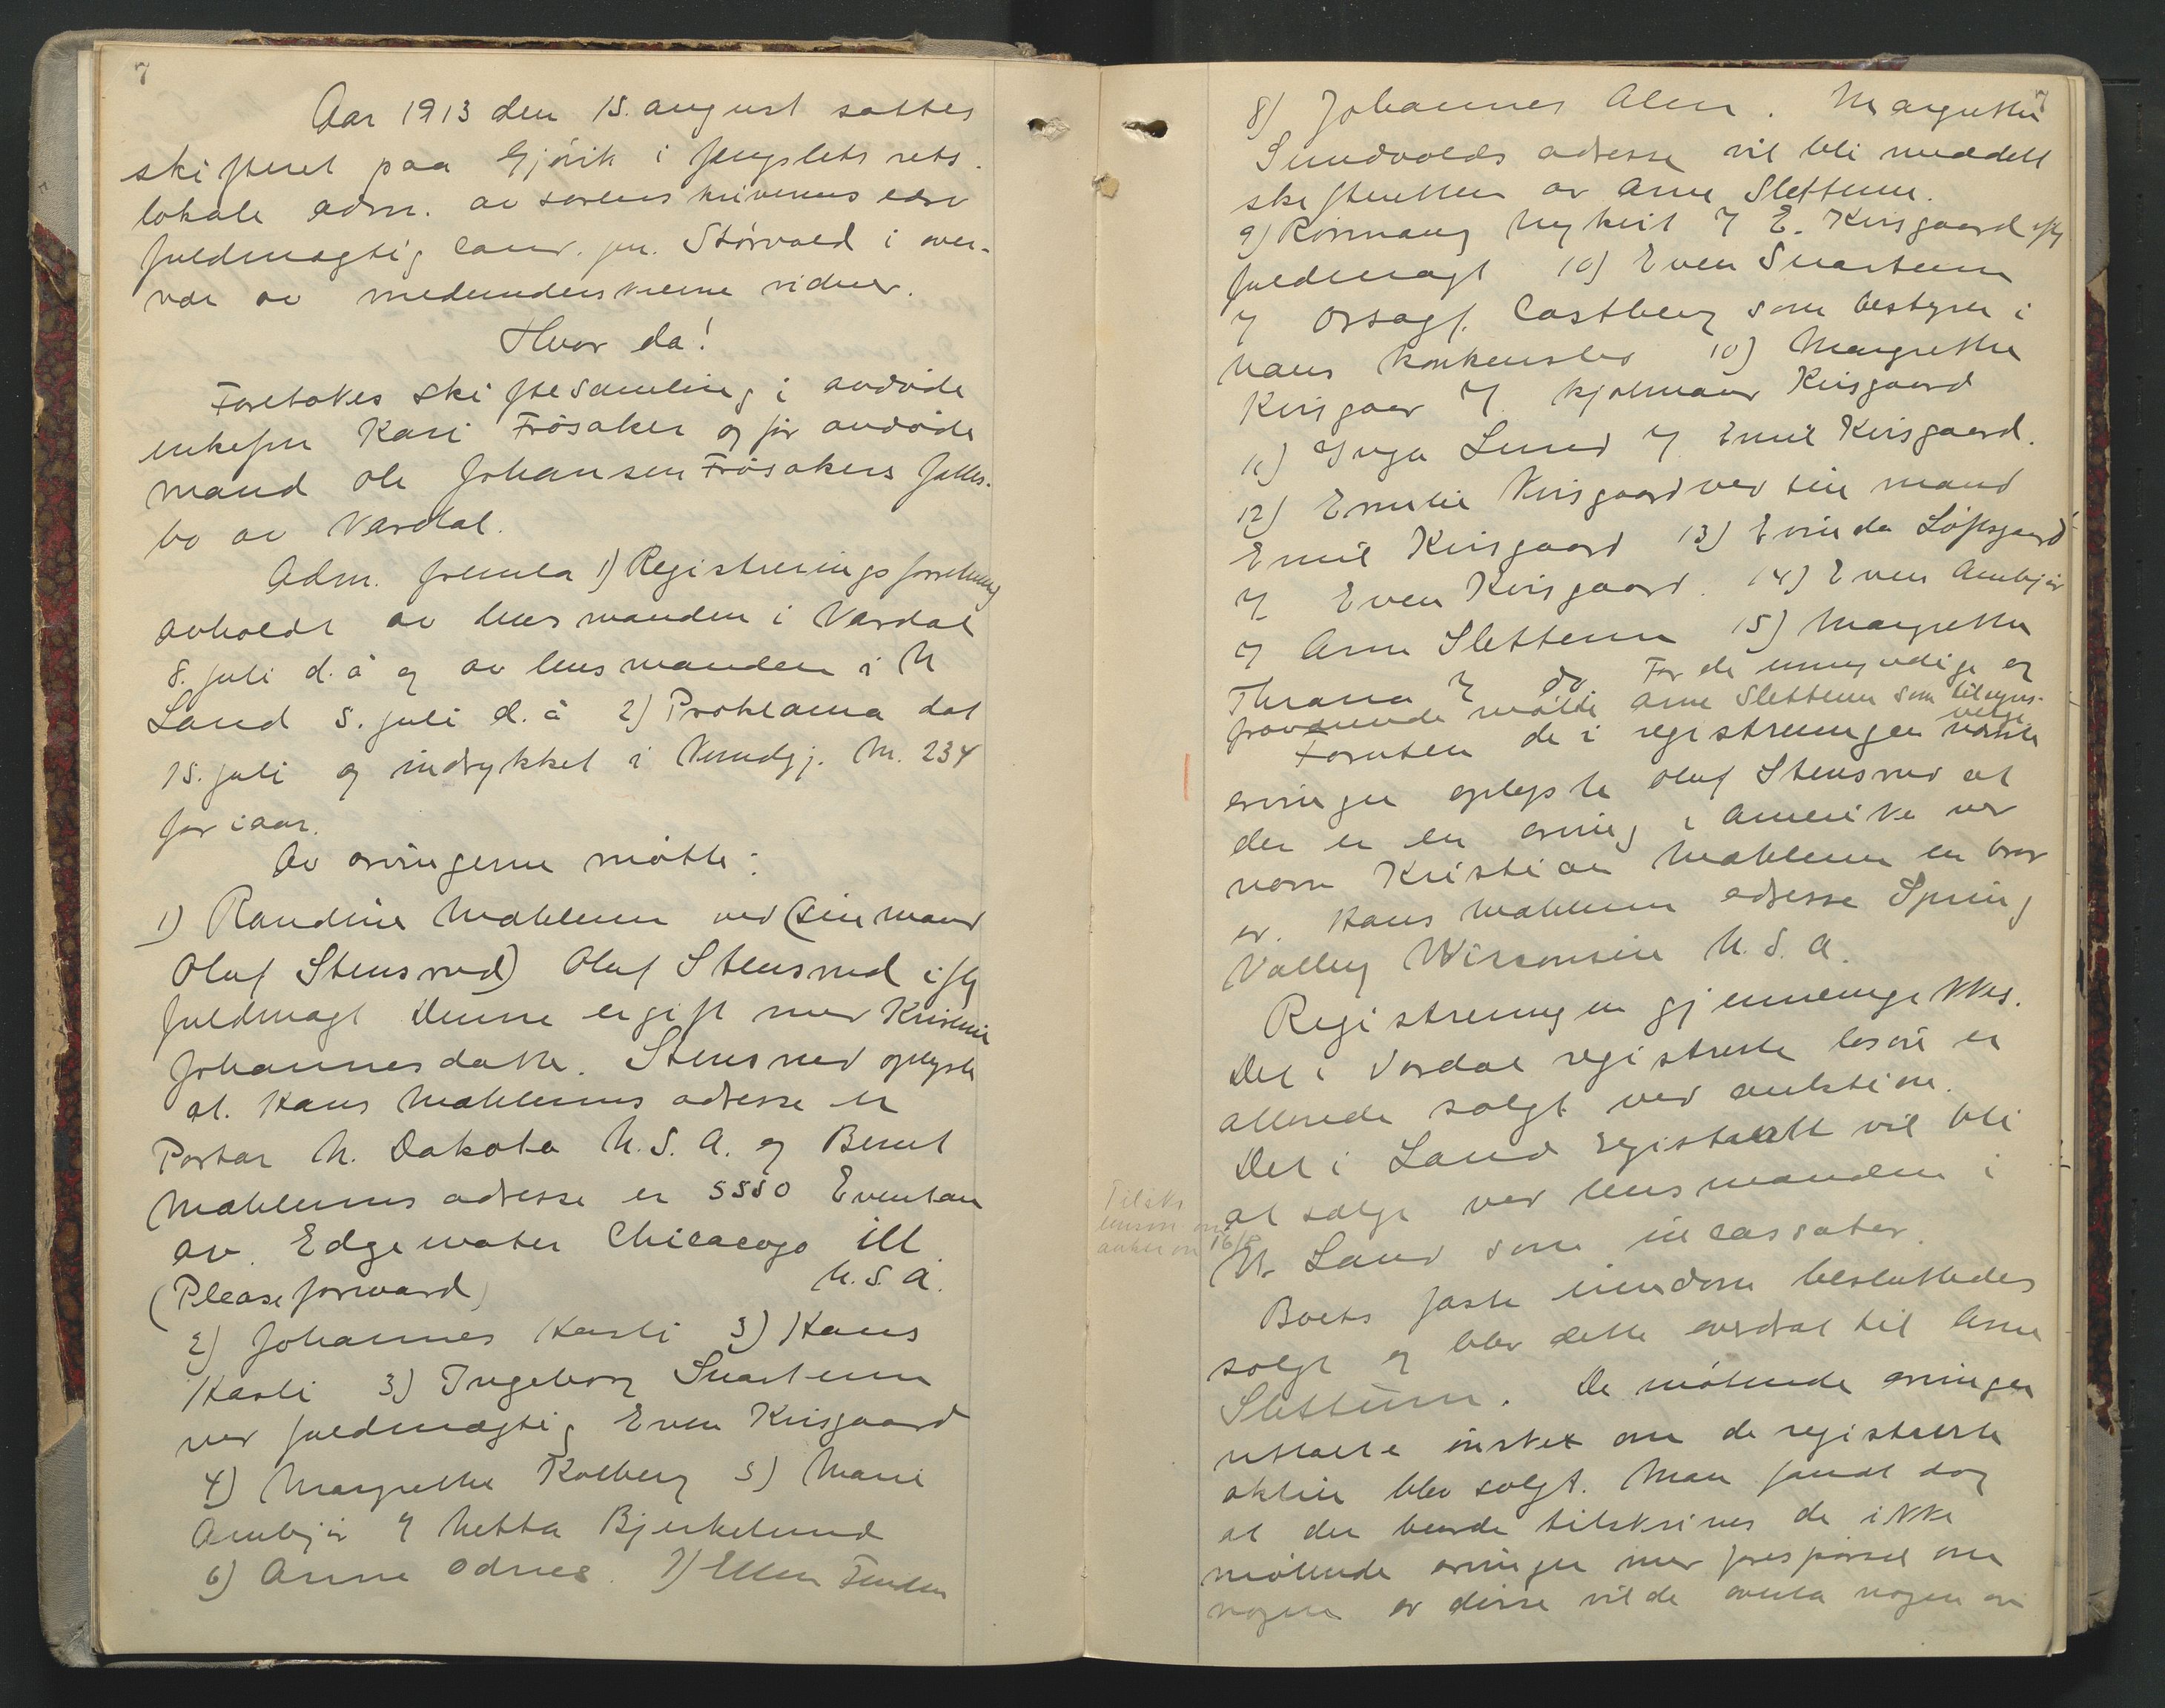 7
Aar 1913 den 15. august sattes
skifteret paa Gjövik i fengslets rets-
lokale adm. av sorenskriverens edsv
fuldmægtig cand. jur. Störvold i over-
vær av medunderskrevne vidner.
Hvor da!
Foretokes skiftesamling i avdöde
enkefru Kari Frösaker og för avdöde
mand Ole Johansen Frösakers fælles-
bo av Vardal.
Adm. fremla 1) Registreringsforretning
avholdt av lensmanden i Vardal
8. juli d. å og av lensmanden i N
Land 5. juli d. å 2) Proklama dat
15. juli og indrykket i Kundgj. Nr. 234
for iaar.
Av arvingerne mötte:
1) Randine Mæhlum ved (sin mand
Oluf Stensrud) Oluf Stensrud iflg
fuldmagt Denne er gift med Kristine
Johannesdatter. Stensrud oplyste
at Hans Mæhlums adresse er
Portar N. Dakota U.S.A. og Bernt
Mæhlums adresse er 5550 Evenstan
av. Edgewater Chicacogo Ill
(Please forward) U.S.A.
2) Johannes Hasli 3) Hans
Hasli 3) Ingeborg Snartum
ved fuldmægtig Even Krisgaard
4) Margrethe Kolberg 5) Marie
Ambjör v/ Netta Bjerkelund
6) Anne Odnes. 7) Ellen
7
8) Johannes Alm. Margrethe
Sundvolds adresse vil bli meddelt
skifteretten av Arne Slettum.
9) Nykvit v/ E. Krisgaard iflg
fuldmagt 10) Even Snartum
v/ Orsagf. Castberg som bestyrer i
hans konkursbo 10) Margrethe
Krisgaar v/ Hjalmar Krisgaard
11) Inga Lund v/ Emil Krisgaard.
12) Emilie Krisgaard ved sin mand
Emil Krisgaard 13) Evinda Löfsgaard
v/ Even Krisgaard. 14) Even Ambjör
v/ Arne Slettum 15) Margrethe
Thrana v/ do For de umyndige og
fraværende mötte Arne Slettum som tilsyns-
verge
Foruten de i registreringen nævnte
arvinger oplyste Oluf Stensrud at
der er en arving i Amerika ved
navn Kristian Mæhlum en bror
av Hans Mæhlum adresse Spring
Valley Wisconsin U.S.A.
Registreringen gjennemgikkes.
Det i Vardal registrerte lösöre er
allerede solgt ved auktion.
Det i Land registrert vil bli
at sælge ved lensmanden i
N. Land som incassator.
Tilskr.
lensm. om
auktion 16/8
Boets faste eiendom besluttedes
solgt og blev dette overdrat til Arne
Slettum. De mötende arvinger
uttalte önsket om de registrerte
aktier blev solgt. Man fandt dog
at der burde tilskrives de ikke
mötende arvinger med forespörsel om
nogen av disse vilde overta nogen av